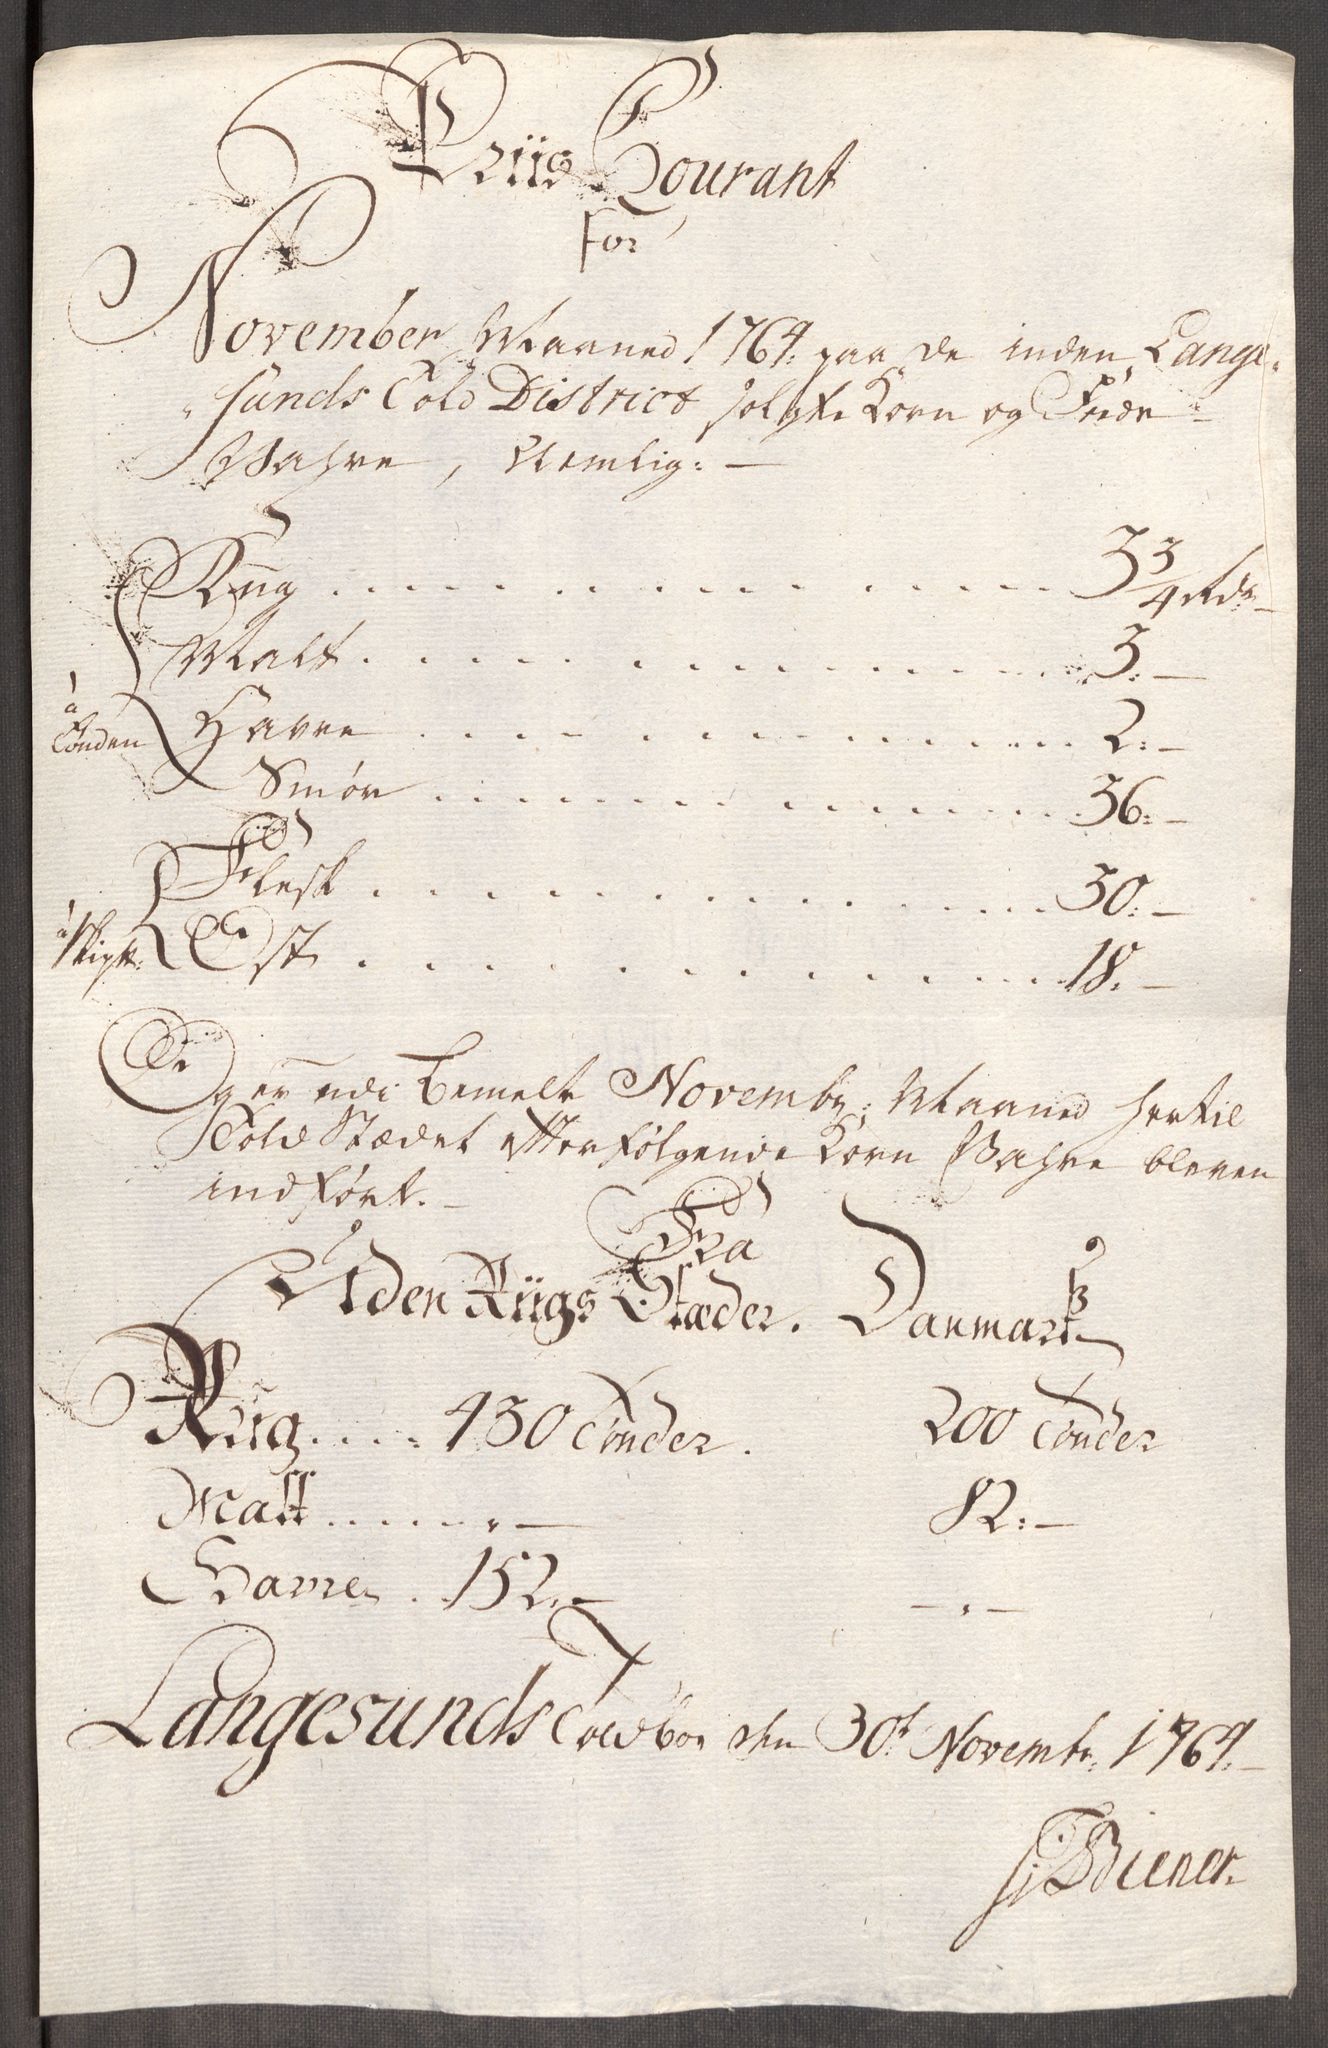 Priis Courant
for
November Maaned 1764. paa de inden Lange-
sunds Told District solgte Korn og Feede
Wahre, Nemlig: —
Rug . . . . . . . . . . . . 3 3/4 Rdr. —
Malt . . . . . . . . . . . . 3. —
à Tønden Havre . . . . . . . . . . . . 2: —
Smør . . . . . . . . . . . . 36: —
Flesk . . . . . . . . . . . . 30: —
à Skip#: Ost . . . . . . . . . . . . 18. —
Og er udi bemelte Novembr: Maaned hertil
Told Stædet efterfølgende Korn Wahre bleven
indført. —
Fra
Uden Riigs Stæder. Danmark
Rug . . . . 430 Tønder. 200 Tønder
Malt . . . . „ — 82: —
Havre . 152. — — „ —
Langesunds Toldboe den 30t Novembr: 1764. —
Biener.